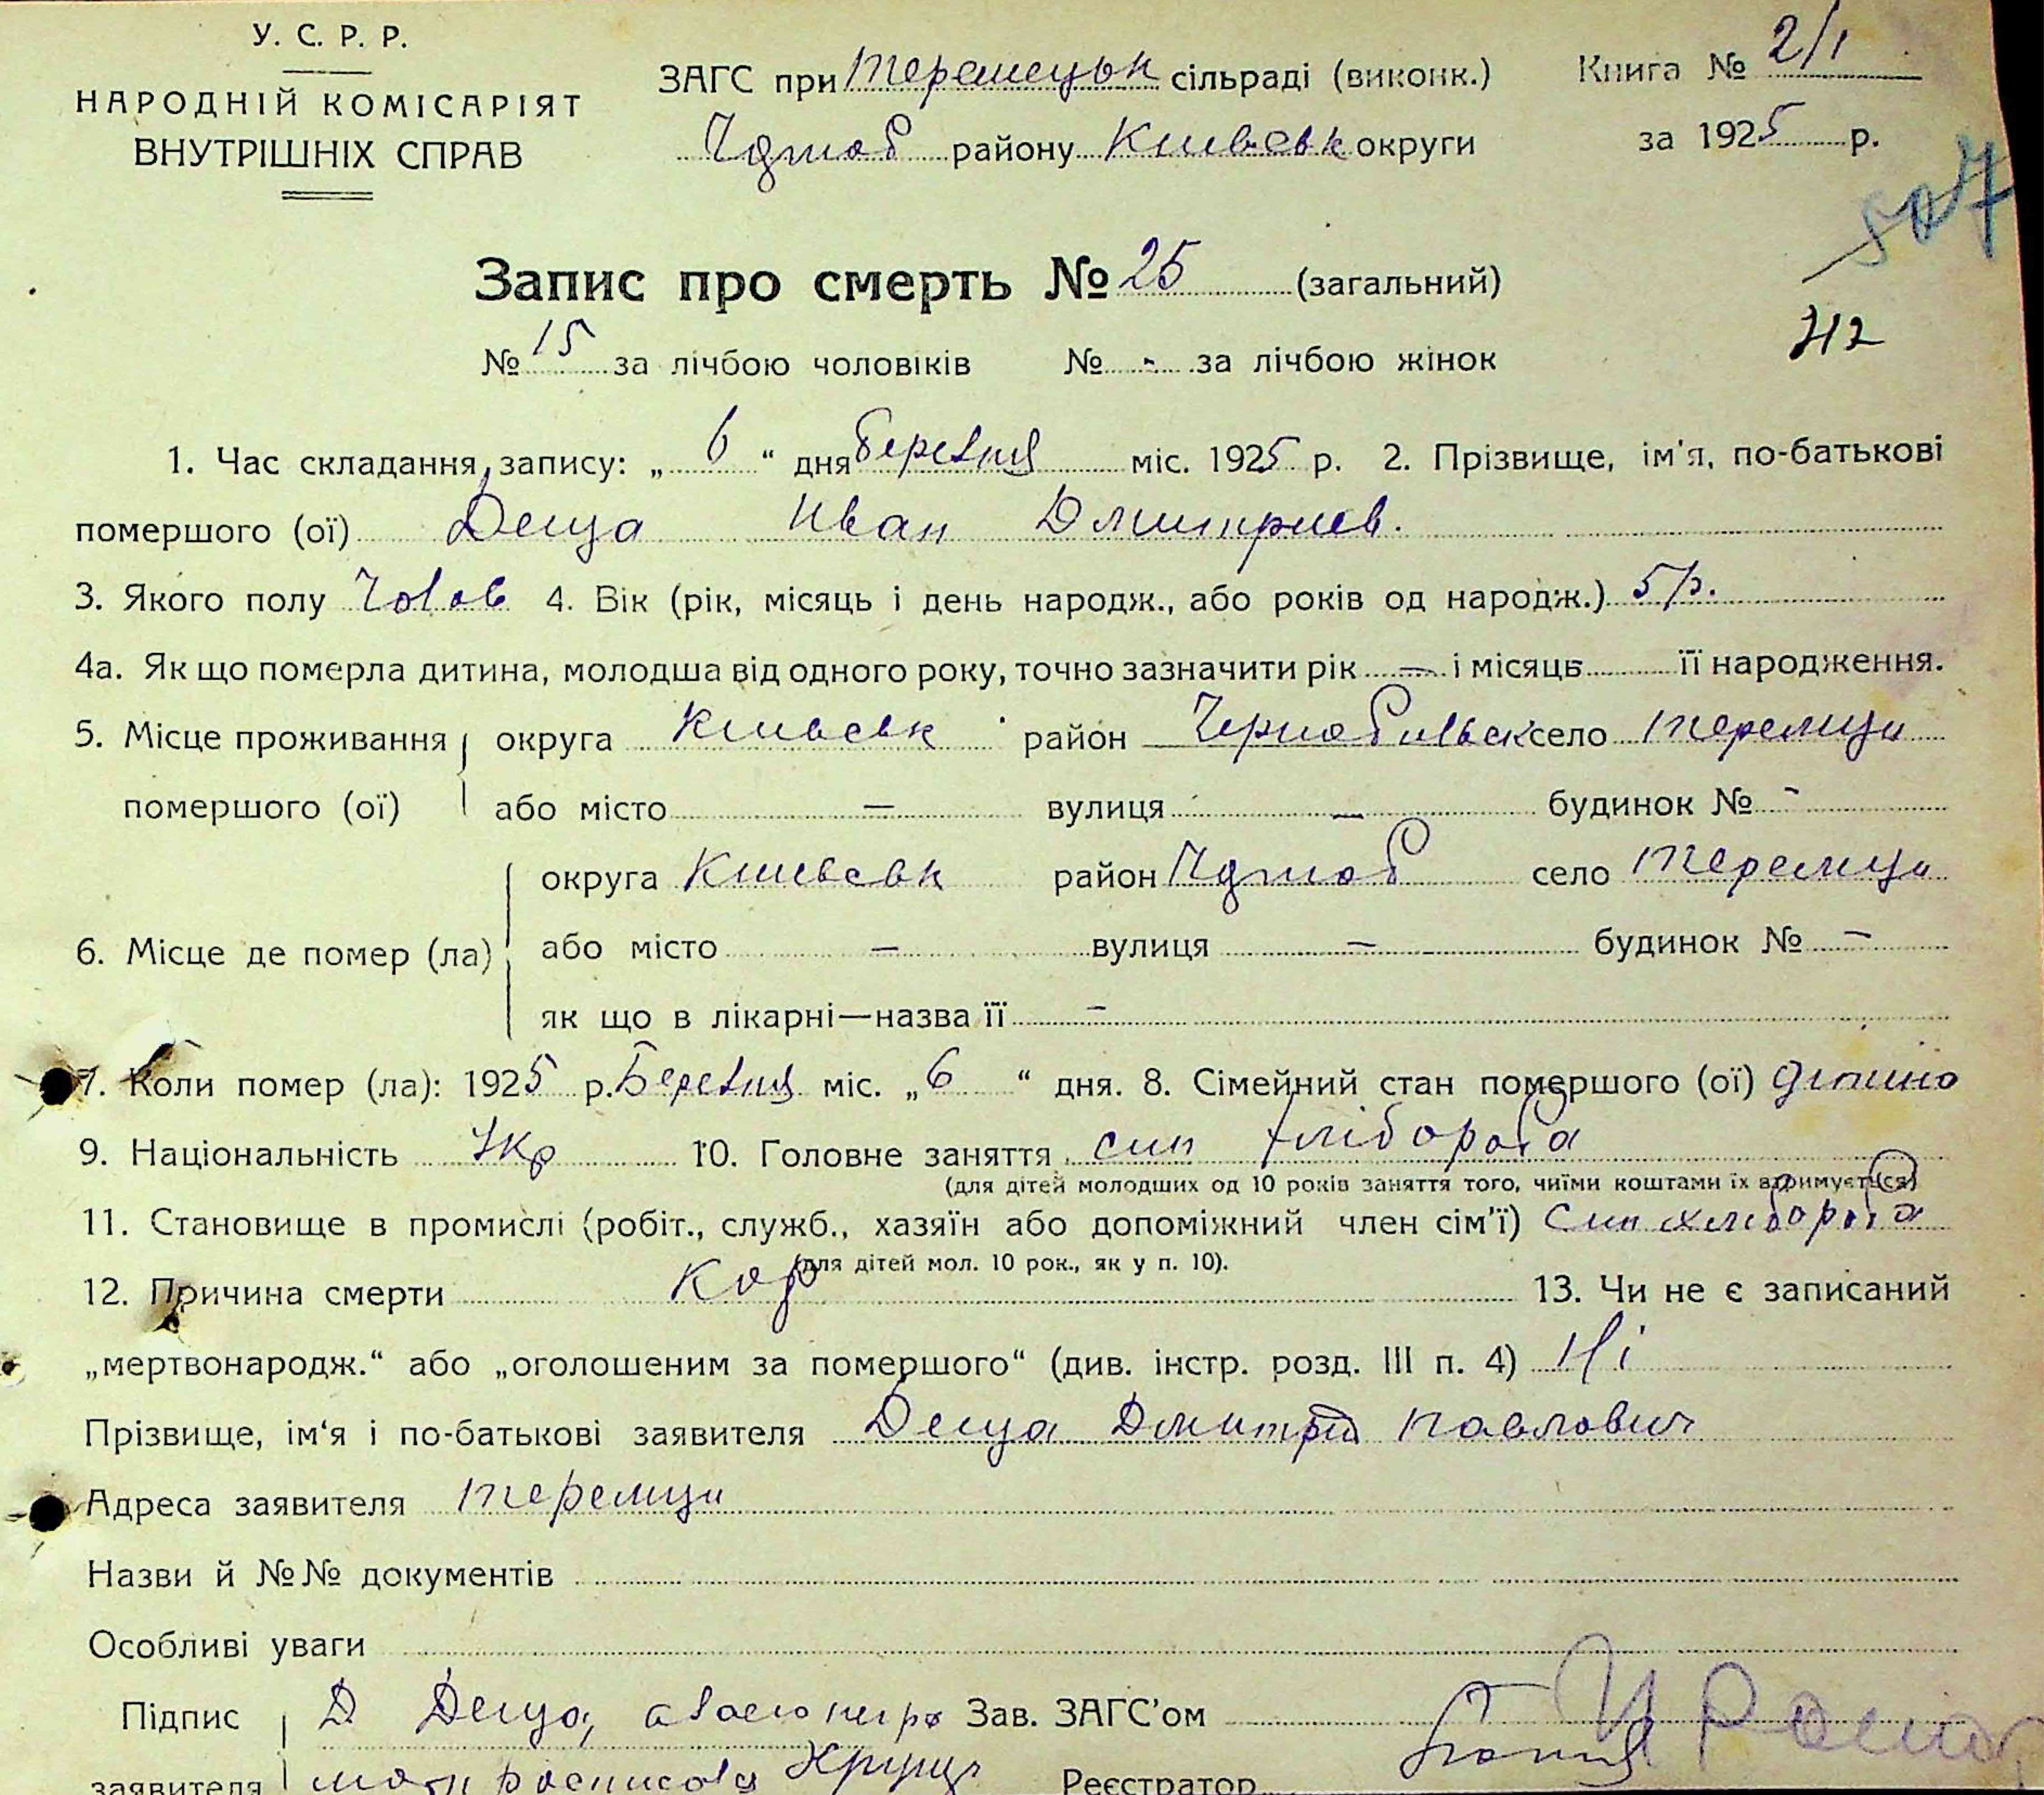 У. С. Р. Р.
НАРОДНІЙ КОМІСАРІЯТ
ВНУТРІШНІХ СПРАВ
ЗАГС при Теремецьк сільраді (виконк.)
району Киевськ округи
Книга № 2/1
за 1925 р.
507
Запис про смерть № 25 (загальний)
712
№ 15 за лічбою чоловіків № - за лічбою жінок
1. Час складання запису: „ 6 “ дня березня міс. 1925 р. 2. Прізвище, ім'я, по-батькові
помершого (ої) Деща Иван Дмитриев.
3. Якого полу Чолов 4. Вік (рік, місяць і день народж., або років од народж.) 5 р.
4а. Як що померла дитина, молодша від одного року, точно зазначити рік — і місяць її народження.
5. Місце проживання округа Киевськ район Чернобильськ село Теремци
помершого (ої) або місто — вулиця — будинок № -
округа Киевськ район село Теремци
6. Місце де помер (ла) або місто — вулиця — будинок № —
як що в лікарні—назва її —
7. Коли помер (ла): 1925 р. Березня міс. „ 6 “ дня. 8. Сімейний стан помершого (ої) дитина
9. Національність Укр 10. Головне заняття син хлібороба
(для дітей молодших од 10 років заняття того, чиїми коштами їх втримується)
11. Становище в промислі (робіт., служб., хазяїн або допоміжний член сім'ї) син хлібороба
(для дітей мол. 10 рок., як у п. 10).
12. Причина смерти Кор 13. Чи не є записаний
„мертвонародж.“ або „оголошеним за помершого“ (див. інстр. розд. III п. 4) Ні
Прізвище, ім'я і по-батькові заявителя Деща Дмитрій Павлович
Адреса заявителя Теремци
Назви й №№ документів
Особливі уваги
Підпис Д Деща, Зав. ЗАГС'ом
заявителя Реєстратор